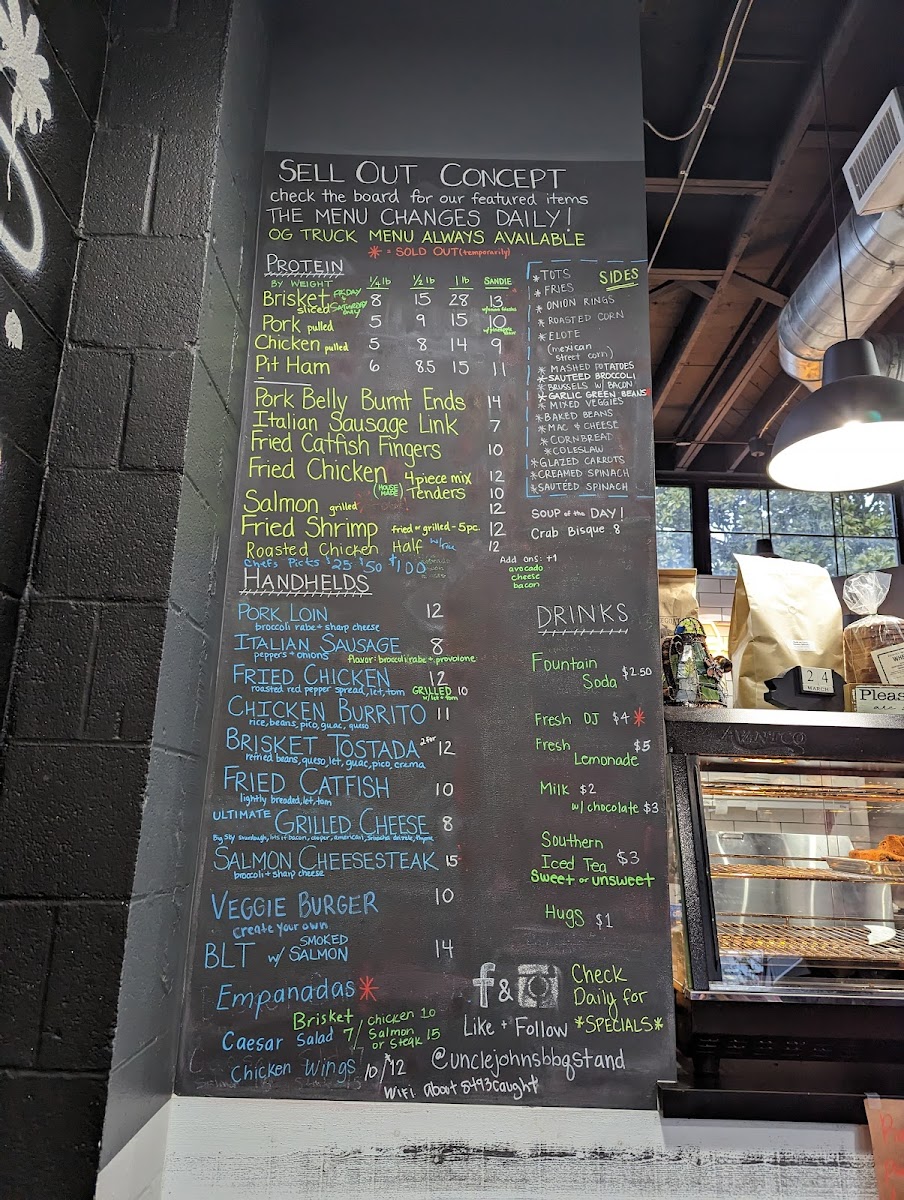 SELL OUT CONCEPT
check the board for our featured items
THE MENU CHANGES DAILY!
OG TRUCK MENU ALWAYS AVAILABLE
* = SOLD OUT (temporarily)
PROTEIN
BY WEIGHT 1/4 lb 1/2 lb 1 lb SANDIE
Brisket sliced FRIDAY + SATURDAY only 8 15 28 13
Pork pulled 5 9 15 10
Chicken pulled 5 8 14 9
Pit Ham 6 8.5 15 11
Pork Belly Burnt Ends 14
Italian Sausage Link 7
Fried Catfish Fingers 10
Fried Chicken 4 piece mix 12
(HOUSE MADE) Tenders 10
Salmon grilled 12
Fried Shrimp fried or grilled - 5pc. 12
Roasted Chicken Half 12
Chefs Picks $25 $50 $100
SIDES
*TOTS
*FRIES
*ONION RINGS
*ROASTED CORN
*ELOTE
(mexican
street corn)
*MASHED POTATOES
*SAUTEED BROCCOLI
*BRUSSELS W/ BACON
*GARLIC GREEN BEANS
*MIXED VEGGIES
*BAKED BEANS
*MAC & CHEESE
*CORNBREAD
*COLESLAW
*GLAZED CARROTS
*CREAMED SPINACH
*SAUTEED SPINACH
SOUP of the DAY!
Crab Bisque 8
Add ons: +1
avocado
cheese
bacon
HANDHELDS
PORK LOIN 12
broccoli rabe + sharp cheese
ITALIAN SAUSAGE 8
peppers + onions flavor: broccoli rabe + provolone
FRIED CHICKEN 12
roasted red pepper spread, let, tom GRILLED 10
CHICKEN BURRITO 11
rice, beans, pico, guac, queso
BRISKET TOSTADA 2 for 12
refried beans, queso, let, guac, pico, crema
FRIED CATFISH 10
lightly breaded, let, tom
ULTIMATE GRILLED CHEESE 8
SALMON CHEESESTEAK 15
broccoli + sharp cheese
VEGGIE BURGER 10
create your own
BLT w/ SMOKED SALMON 14
Empanadas *
Brisket
Caesar Salad 7/ chicken 10
Salmon
or Steak 15
Chicken Wings 10/$12
DRINKS
Fountain
Soda $2.50
Fresh OJ $4 *
Fresh
Lemonade $5
Milk $2
w/ chocolate $3
Southern
Iced Tea $3
Sweet or unsweet
Hugs $1
f &
Like + Follow
Check
Daily for
*SPECIALS*
@unclejohnsbbqstand
WiFi about 5493caught
24
MARCH
Please
AVANTCO